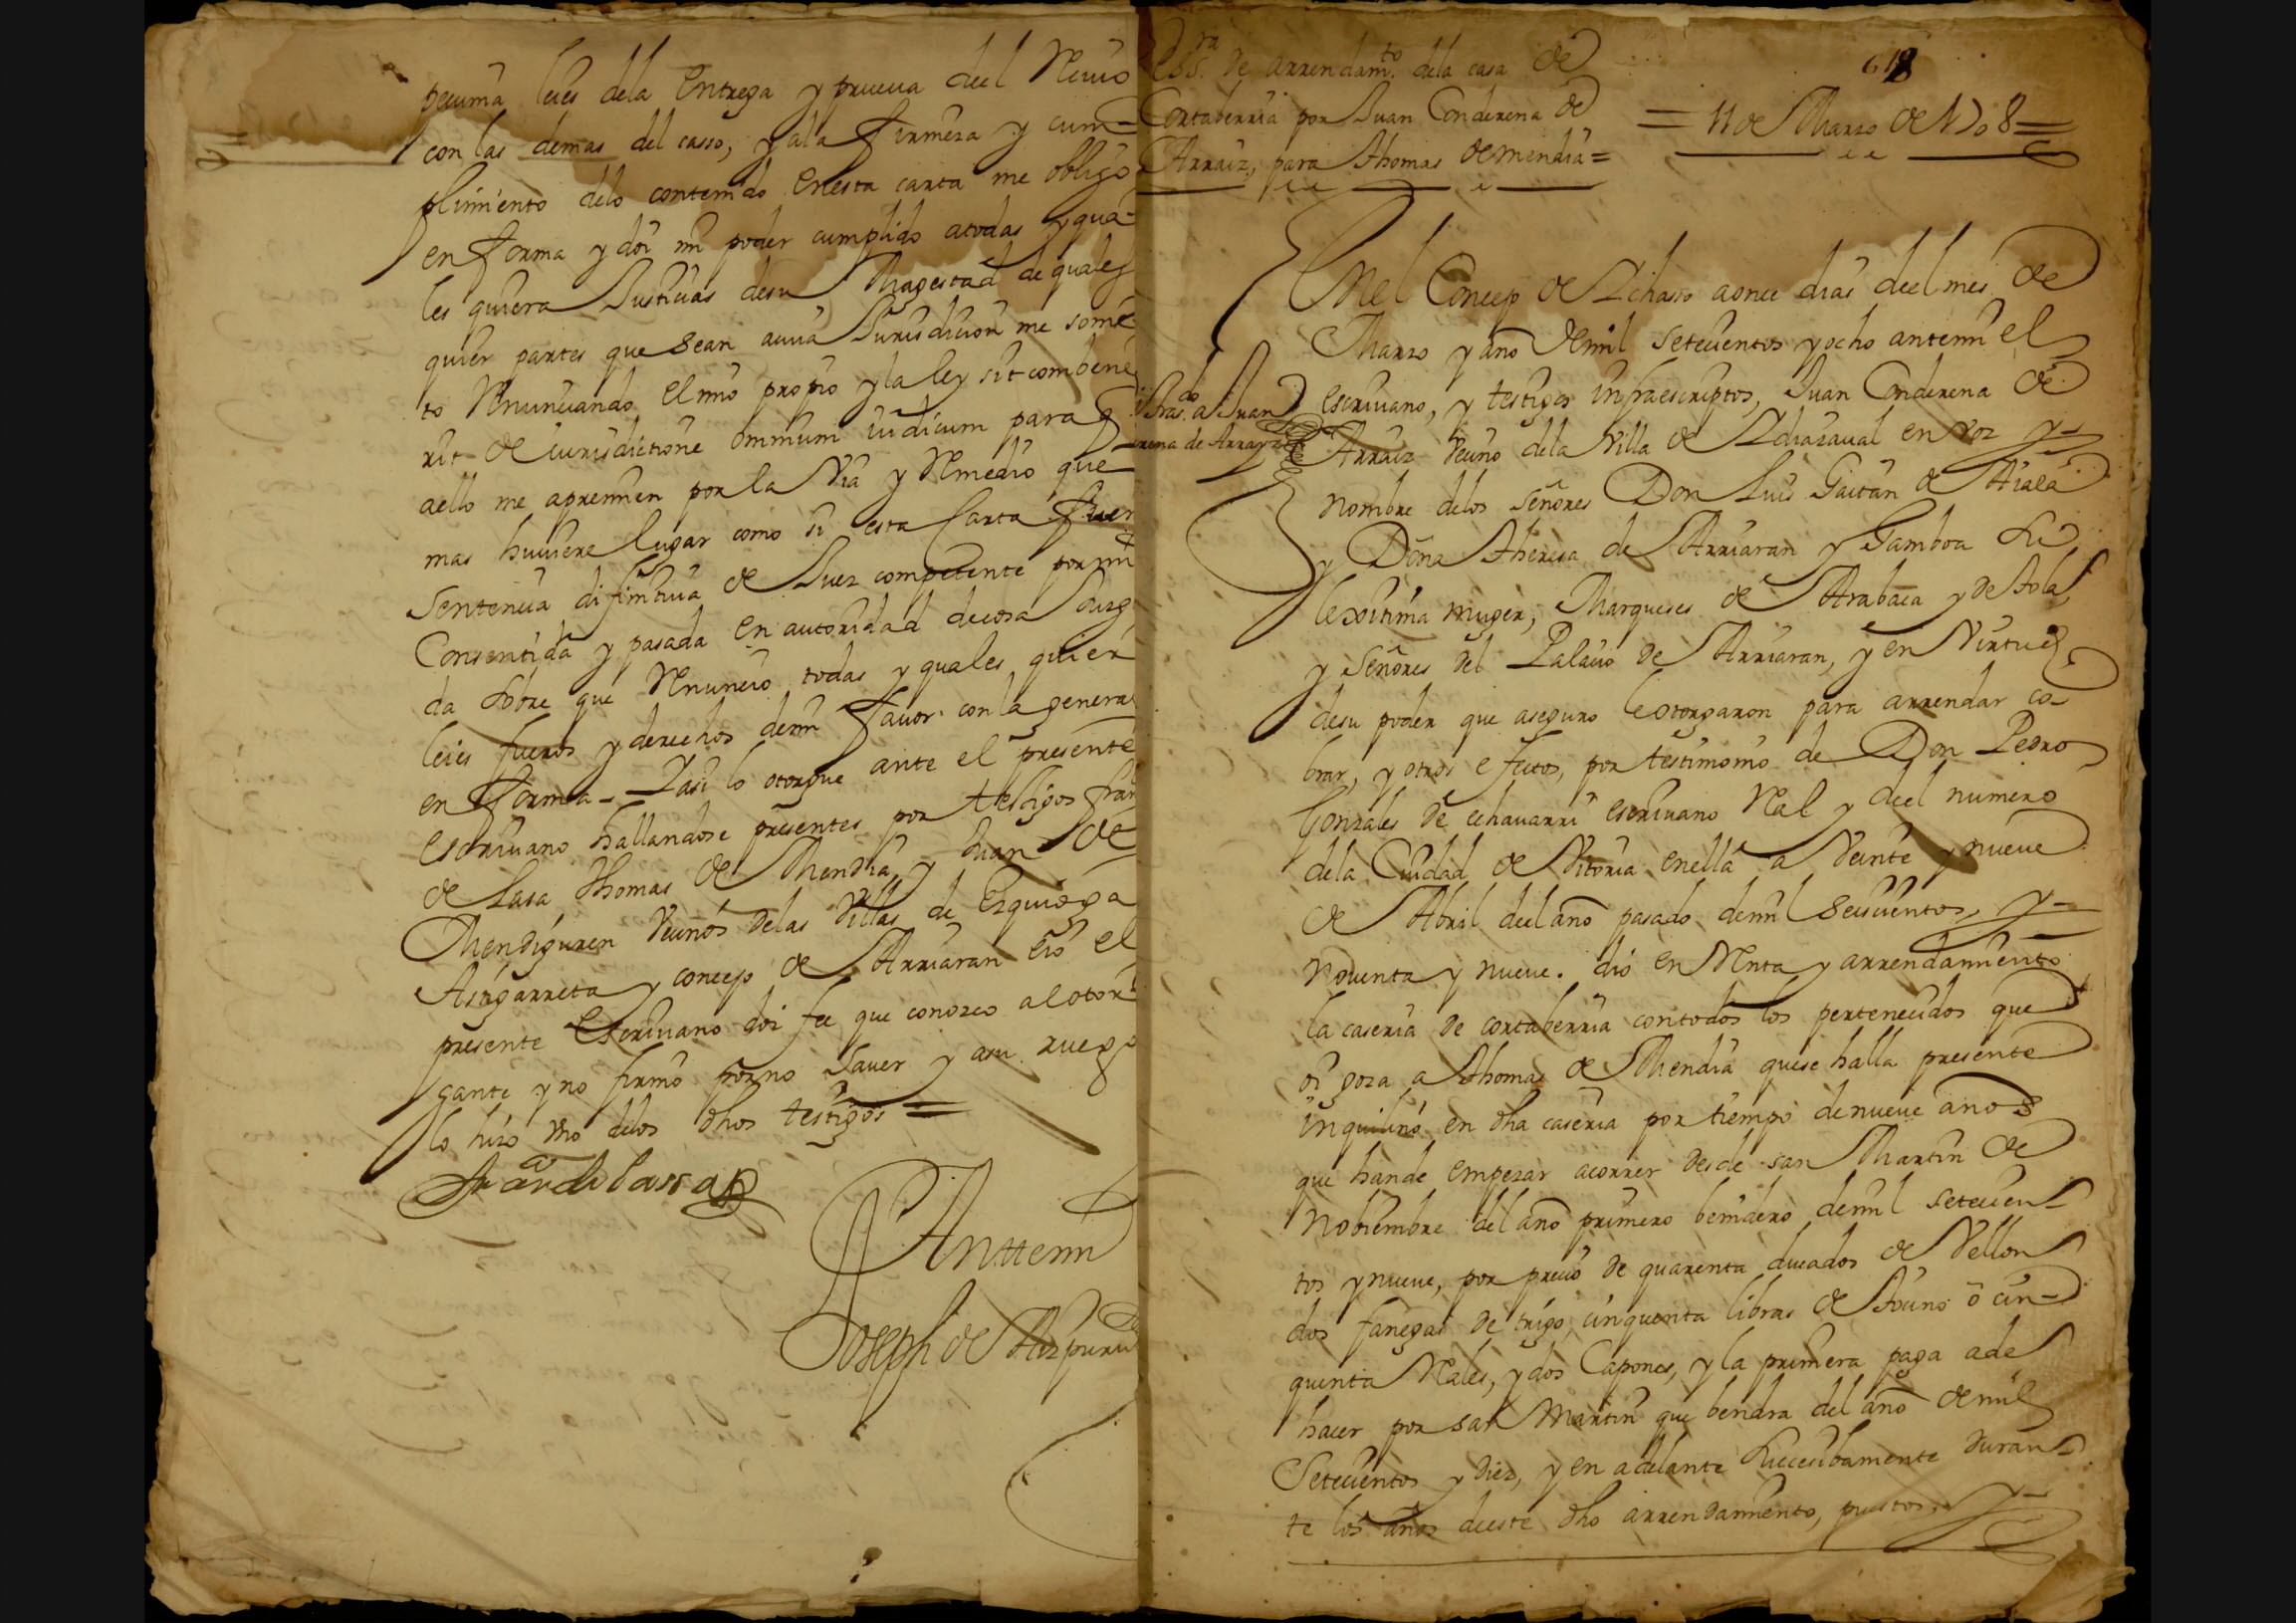 pecunia leies dela entrega y prueua deel reciuo
con las demas del casso, y ala firmeza y cum-
plimiento delo contenido enesta carta me obligo
en forma y doi mi poder cumplido atodas y qua-
les quiera Justicias desu Magestad de quales
quier partes que sean acuia Jurisdicion me some
to renunciando el mio propio y la ley sit combene
rit de iurisdictione omnium iudicum para q
aello me apremien por la via y remedio que
mas huuiere lugar como si esta carta fuer
sentencia difinitiua de Juez competente por mi
consentida y pasada en autoridad decosa Juzga
da sobre que renuncio todas y quales quier
leies fueros y derechos demi fauor con la general
en forma - I asi lo otorgue ante el presente
escriuano hallandose presentes por testigos fran
de Lasa Thomas de Mendia, y Juan de
Mendiguren vecinos delas villas de Ezquioga
Astigarreta y concejo de Arriaran e io el
presente escriuano doi fee que conozco al otor
gante y no firmo por no sauer y asu ruego
lo hizo vno delos dhos testigos =
fran de lassa
Anttemi
Joseph de Aizpuru
Essra de arrendamto dela casa de
Cortaberria por Juan Conderena de
Arraiz, para Thomas de mendia =
618
= 11 de Marzo de 1708 =
En el Concejo de Ichasso aonce dias deel mes de
Marzo y año de mil setecientos y ocho antemi el
escriuano, y testigos infraescriptos, Juan Conderena de
Arraiz vecino dela villa de Idiazaual en voz y
nombre delos señores Don Luis Gaitan de Aiala
y Doña Theresa de Arriaran y Gamboa su
lexitima muger, Marqueses de Arabaca y de Sola
y señores del Palacio de Arriaran, y en virtud
desu poder que aseguro le otorgaron para arrendar co-
brar, y otros efectos, por testimonio de Don Pedro
Gonzales de echauarri escriuano Real y deel numero
dela Ciudad de Vitoria enella a veinte y nueue
de Abril deel año pasado demil seiscientos, y
nouenta y nueue. dio en renta y arrendamiento
la caseria de cortaberria contodos los pertenecidos que
oi goza a Thomas de Mendia quese halla presente
inquilino en dha caseria por tiempo de nueue años
que hande empezar acorrer desde san Martin de
Nobiembre del año primero benidero demil setecien-
tos y nueue, por precio de quarenta ducados de vellon
dos fanegas de trigo, cinquenta libras de tocino o cin-
quenta Reales, y dos Capones, y la primera paga ade
hacer por san Martin que bendra del año de mil
setecientos y diez, y en adelante subcesibamente duran-
te los años deeste dho arrendamiento, puestos.
drado a Juan
rena de Arrayz